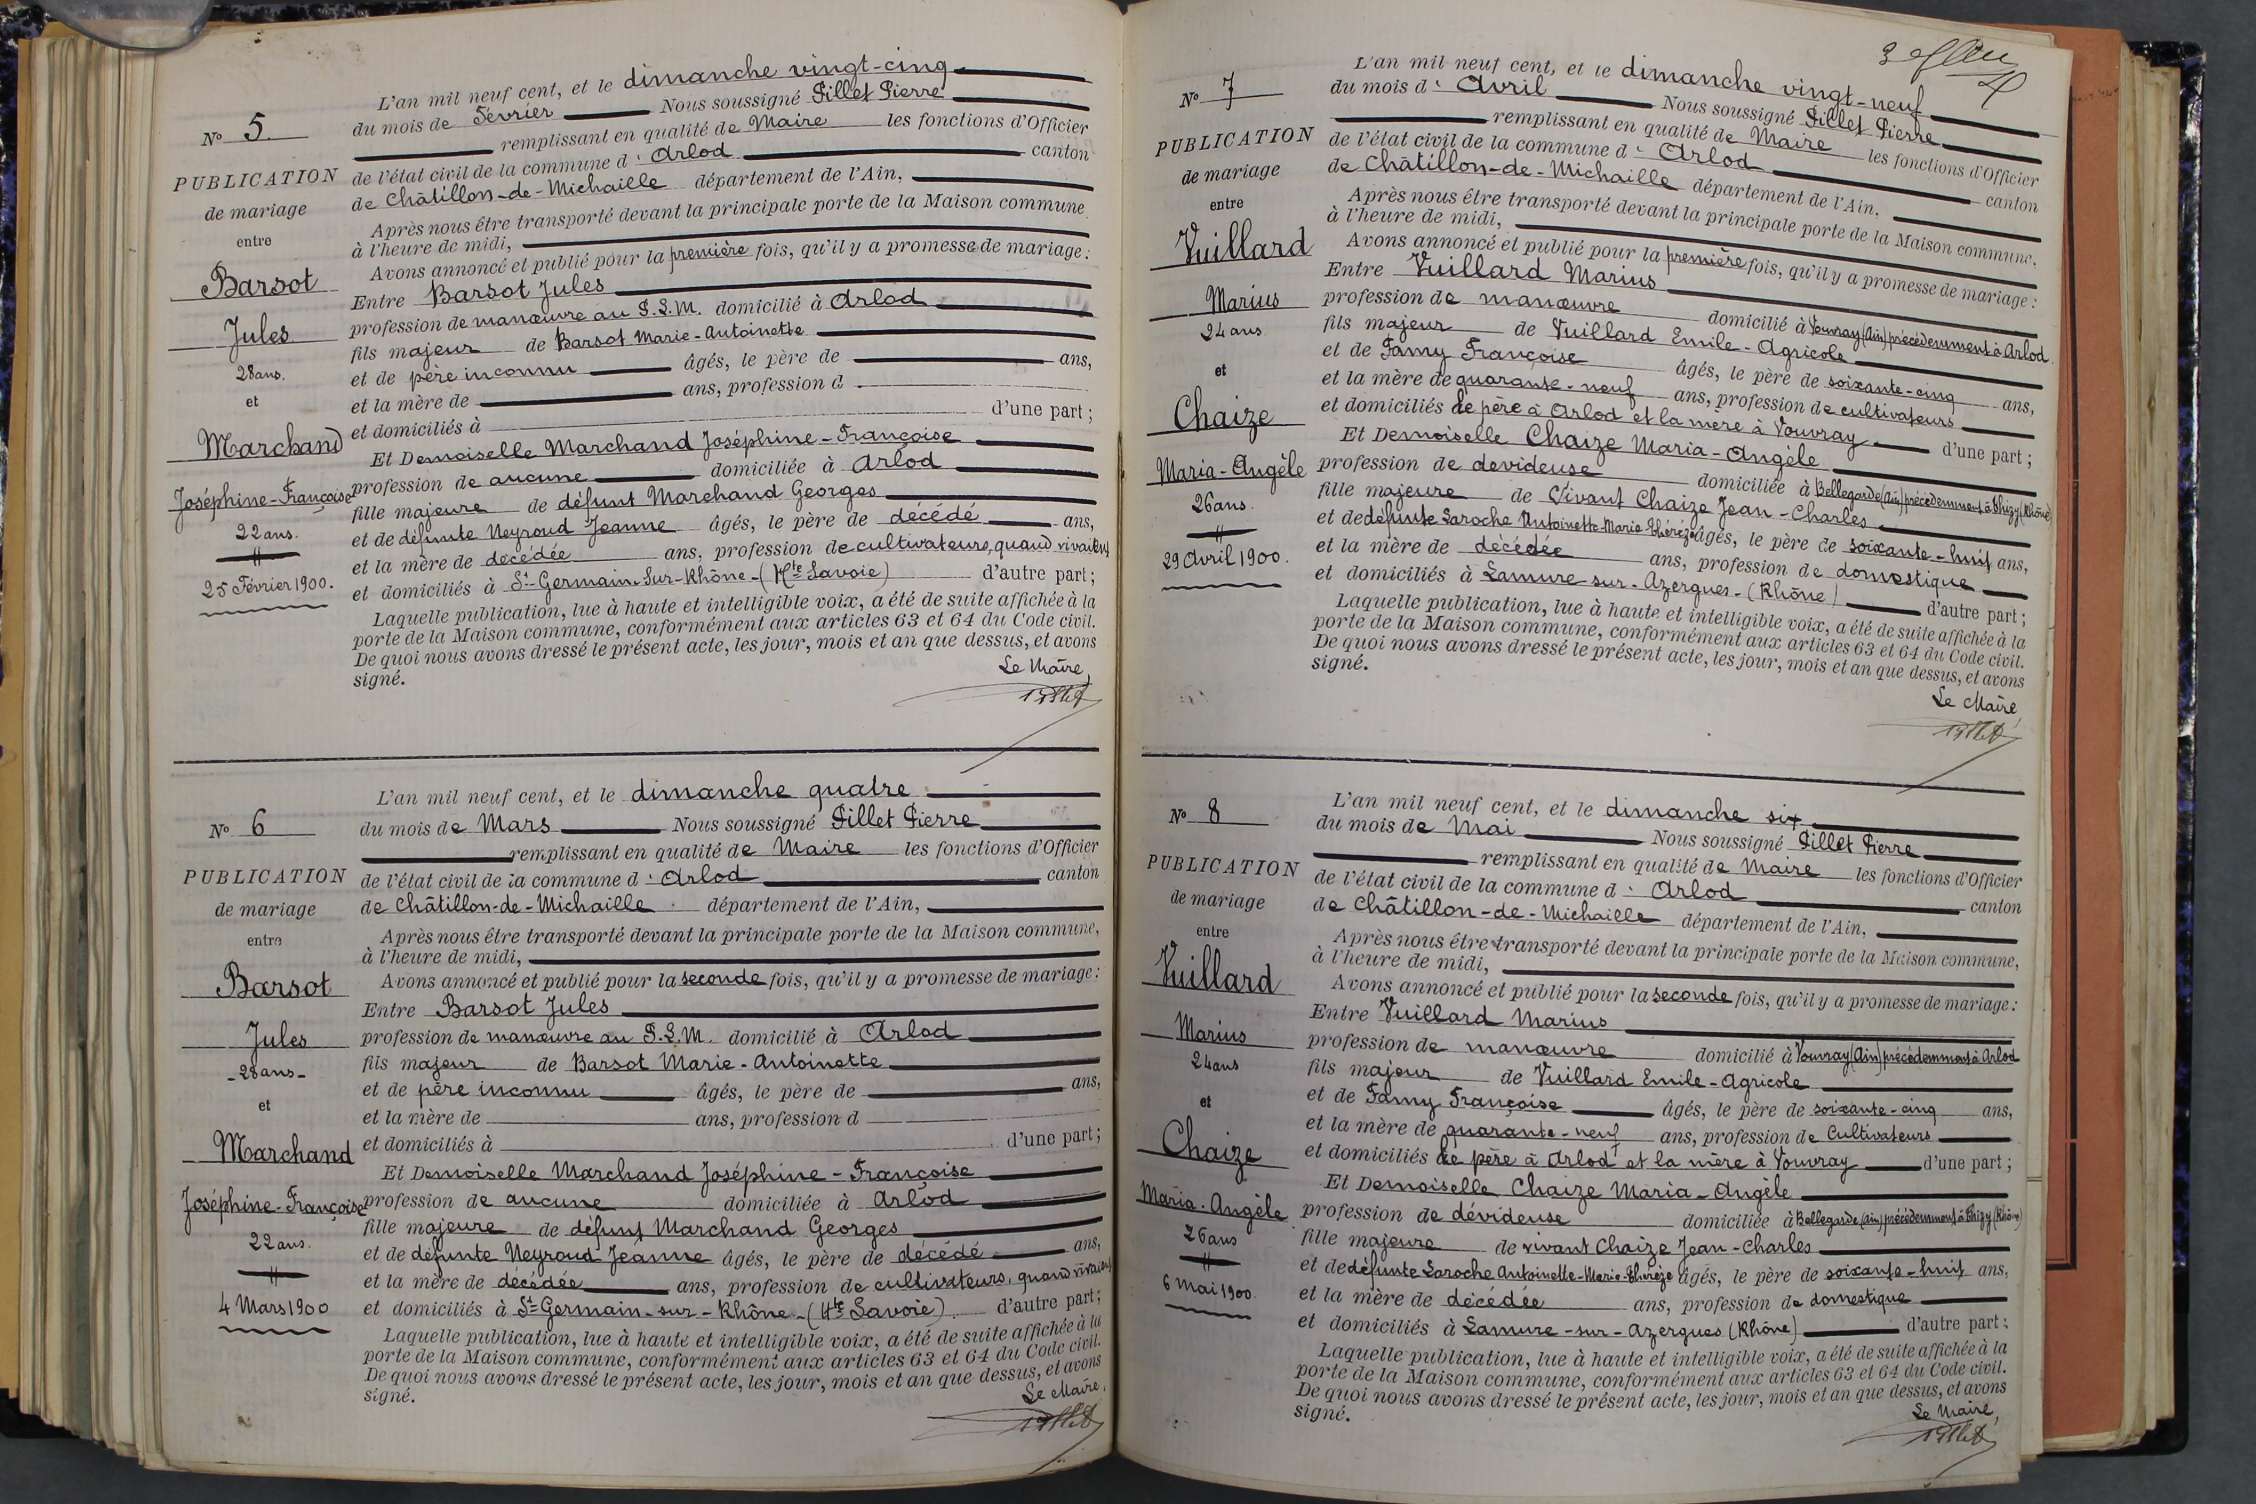 N° 5.
PUBLICATION
de mariage
entre
Barsot
Jules
28 ans.
et
Marchand
Joséphine-Françoise
22 ans.
25 Février 1900.
L'an mil neuf cent, et le dimanche vingt-cinq
du mois de Février Nous soussigné Pillet Pierre
remplissant en qualité de Maire les fonctions d'Officier
de l'état civil de la commune d'Arlod canton
de Châtillon-de-Michaille département de l'Ain,
Après nous être transporté devant la principale porte de la Maison commune
à l'heure de midi,
Avons annoncé et publié pour la première fois, qu'il y a promesse de mariage :
Entre Barsot Jules
profession de manœuvre au P.L.M. domicilié à Arlod
fils majeur de Barsot Marie-Antoinette
et de père inconnu âgés, le père de ans,
et la mère de ans, profession d
et domiciliés à d'une part ;
Et Demoiselle Marchand Joséphine-Françoise
profession de aucune domiciliée à Arlod
fille majeure de défunt Marchand Georges
et de défunte Neyroud Jeanne âgés, le père de décédé ans,
et la mère de décédée ans, profession de cultivateurs, quand vivaient
et domiciliés à St Germain-Sur-Rhône-(Hte Savoie) d'autre part ;
Laquelle publication, lue à haute et intelligible voix, a été de suite affichée à la
porte de la Maison commune, conformément aux articles 63 et 64 du Code civil.
De quoi nous avons dressé le présent acte, les jour, mois et an que dessus, et avons
signé.
Le Maire,
Pillet
N° 6
PUBLICATION
de mariage
entre
Barsot
Jules
-28 ans-
et
Marchand
Joséphine-Françoise
22 ans.
4 Mars 1900
L'an mil neuf cent, et le dimanche quatre
du mois de Mars Nous soussigné Pillet Pierre
remplissant en qualité de Maire les fonctions d'Officier
de l'état civil de la commune d'Arlod canton
de Châtillon-de-Michaille département de l'Ain,
Après nous être transporté devant la principale porte de la Maison commune,
à l'heure de midi,
Avons annoncé et publié pour la seconde fois, qu'il y a promesse de mariage :
Entre Barsot Jules
profession de manœuvre au P.L.M. domicilié à Arlod
fils majeur de Barsot Marie-Antoinette
et de père inconnu âgés, le père de ans,
et la mère de ans, profession d
et domiciliés à d'une part ;
Et Demoiselle Marchand Joséphine-Françoise
profession de aucune domiciliée à Arlod
fille majeure de défunt Marchand Georges
et de défunte Neyroud Jeanne âgés, le père de décédé ans,
et la mère de décédée ans, profession de cultivateurs, quand vivaient
et domiciliés à St Germain-sur-Rhône-(Hte Savoie) d'autre part ;
Laquelle publication, lue à haute et intelligible voix, a été de suite affichée à la
porte de la Maison commune, conformément aux articles 63 et 64 du Code civil.
De quoi nous avons dressé le présent acte, les jour, mois et an que dessus, et avons
signé.
Le Maire,
Pillet
N° 7
PUBLICATION
de mariage
entre
Vuillard
Marius
24 ans
et
Chaize
Maria-Angèle
26 ans.
29 Avril 1900.
L'an mil neuf cent, et le dimanche vingt-neuf
du mois d'Avril Nous soussigné Pillet Pierre
remplissant en qualité de Maire les fonctions d'Officier
de l'état civil de la commune d'Arlod canton
de Châtillon-de-Michaille département de l'Ain,
Après nous être transporté devant la principale porte de la Maison commune,
à l'heure de midi,
Avons annoncé et publié pour la première fois, qu'il y a promesse de mariage :
Entre Vuillard Marius
profession de manœuvre domicilié à Vouvray (Ain) précédemment à Arlod
fils majeur de Vuillard Emile-Agricole
et de Famy Françoise âgés, le père de soixante-cinq ans,
et la mère de quarante-neuf ans, profession de cultivateurs
et domiciliés le père à Arlod et la mère à Vouvray d'une part ;
Et Demoiselle Chaize Maria-Angèle
profession de devideuse domiciliée à Bellegarde (Ain) précédemment à Thizy (Rhône)
fille majeure de vivant Chaize Jean-Charles
et de défunte Laroche Antoinette-Marie-Thérèze âgés, le père de soixante-huit ans,
et la mère de décédée ans, profession de domestique
et domiciliés à Lamure-sur-Azergues-(Rhône) d'autre part ;
Laquelle publication, lue à haute et intelligible voix, a été de suite affichée à la
porte de la Maison commune, conformément aux articles 63 et 64 du Code civil.
De quoi nous avons dressé le présent acte, les jour, mois et an que dessus, et avons
signé.
Le Maire,
Pillet
N° 8
PUBLICATION
de mariage
entre
Vuillard
Marius
24 ans
et
Chaize
Maria-Angèle
26 ans
6 Mai 1900.
L'an mil neuf cent, et le dimanche six
du mois de Mai Nous soussigné Pillet Pierre
remplissant en qualité de Maire les fonctions d'Officier
de l'état civil de la commune d'Arlod canton
de Châtillon-de-Michaille département de l'Ain,
Après nous être transporté devant la principale porte de la Maison commune,
à l'heure de midi,
Avons annoncé et publié pour la seconde fois, qu'il y a promesse de mariage :
Entre Vuillard Marius
profession de manœuvre domicilié à Vouvray (Ain) précédemment à Arlod
fils majeur de Vuillard Emile-Agricole
et de Famy Françoise âgés, le père de soixante-cinq ans,
et la mère de quarante-neuf ans, profession de Cultivateurs
et domiciliés le père à Arlod et la mère à Vouvray d'une part ;
Et Demoiselle Chaize Maria-Angèle
profession de dévideuse domiciliée à Bellegarde (Ain) précédemment à Thizy (Rhône)
fille majeure de vivant Chaize Jean-Charles
et de défunte Laroche Antoinette-Marie-Thérèze âgés, le père de soixante-huit ans,
et la mère de décédée ans, profession de domestique
et domiciliés à Lamure-sur-Azergues (Rhône) d'autre part ;
Laquelle publication, lue à haute et intelligible voix, a été de suite affichée à la
porte de la Maison commune, conformément aux articles 63 et 64 du Code civil.
De quoi nous avons dressé le présent acte, les jour, mois et an que dessus, et avons
signé.
Le Maire,
Pillet